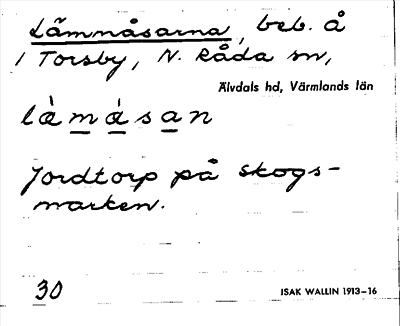 Lämnåsarna, beb. å
1 Torsby, N. Råda sn,
Älvdals hd, Värmlands län
làmásan
Jordtorp på skogs-
marken.
30
ISAK WALLIN 1913-16